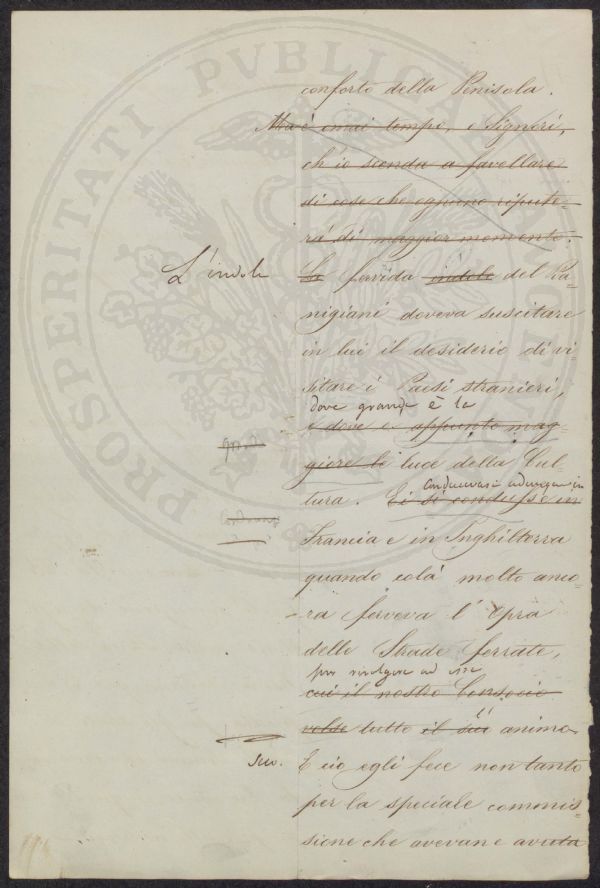 conforto della Penisola.
Ma è omai tempo, o Signori,
ch'io scenda a favellare
di cose che ognuno repute-
rà di maggior momento.
L'indole La fervida indole del Pa-
nigiani doveva suscitare
in lui il desiderio di vi-
sitare i Paesi stranieri,
dove grande è la
e dove è appunto mag-
giore la luce della Cul-
tura. Ei si condusse in
Francia e in Inghilterra
quando colà molto anco-
ra ferveva l'opra
delle Strade ferrate,
per rivolgere ad esse
cui il nostro Consocio
volse tutto il suo l' animo
suo. E ciò egli fece non tanto
per la speciale commis-
sione che avevane avuta
PROSPERITATI PVBLICAE